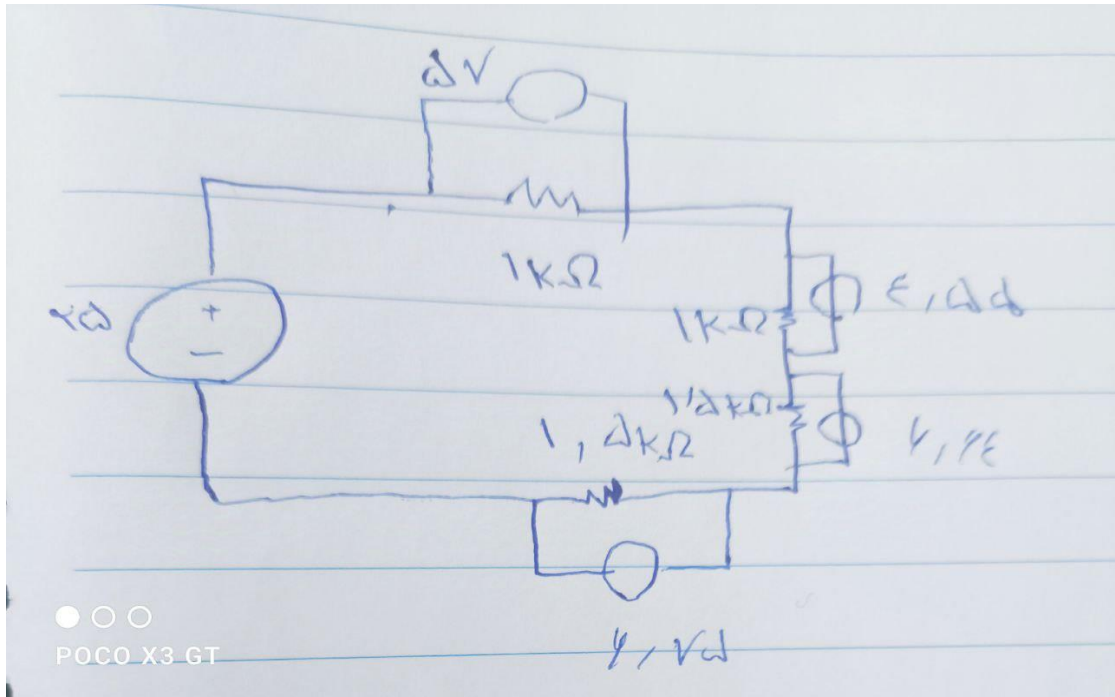 ۵V
۱kΩ
۲۵
+
−
۱kΩ
٤,۵۵
۱,۵kΩ
۱,۵kΩ
۶,۶٤
۶,۷۵
POCO X3 GT